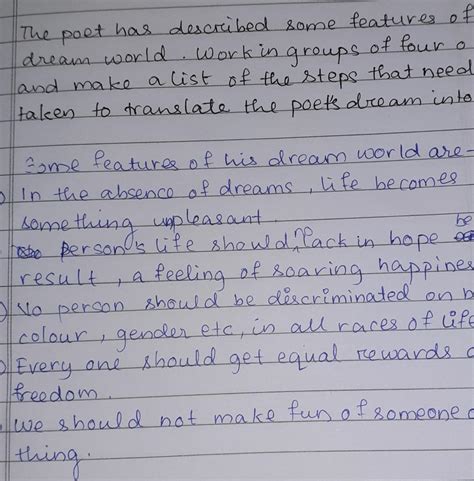 The poet has described some features of
dream world. Work in groups of four o
and make a list of the steps that need
taken to translate the poet's dream into
Some features of his dream world are-
In the absence of dreams, life becomes
something unpleasant.
Person's life should n't lack in hope be
result, a feeling of soaring happines
No person should be discriminated on b
colour, gender etc, in all races of life
Every one should get equal rewards o
freedom.
We should not make fun of someone o
thing.